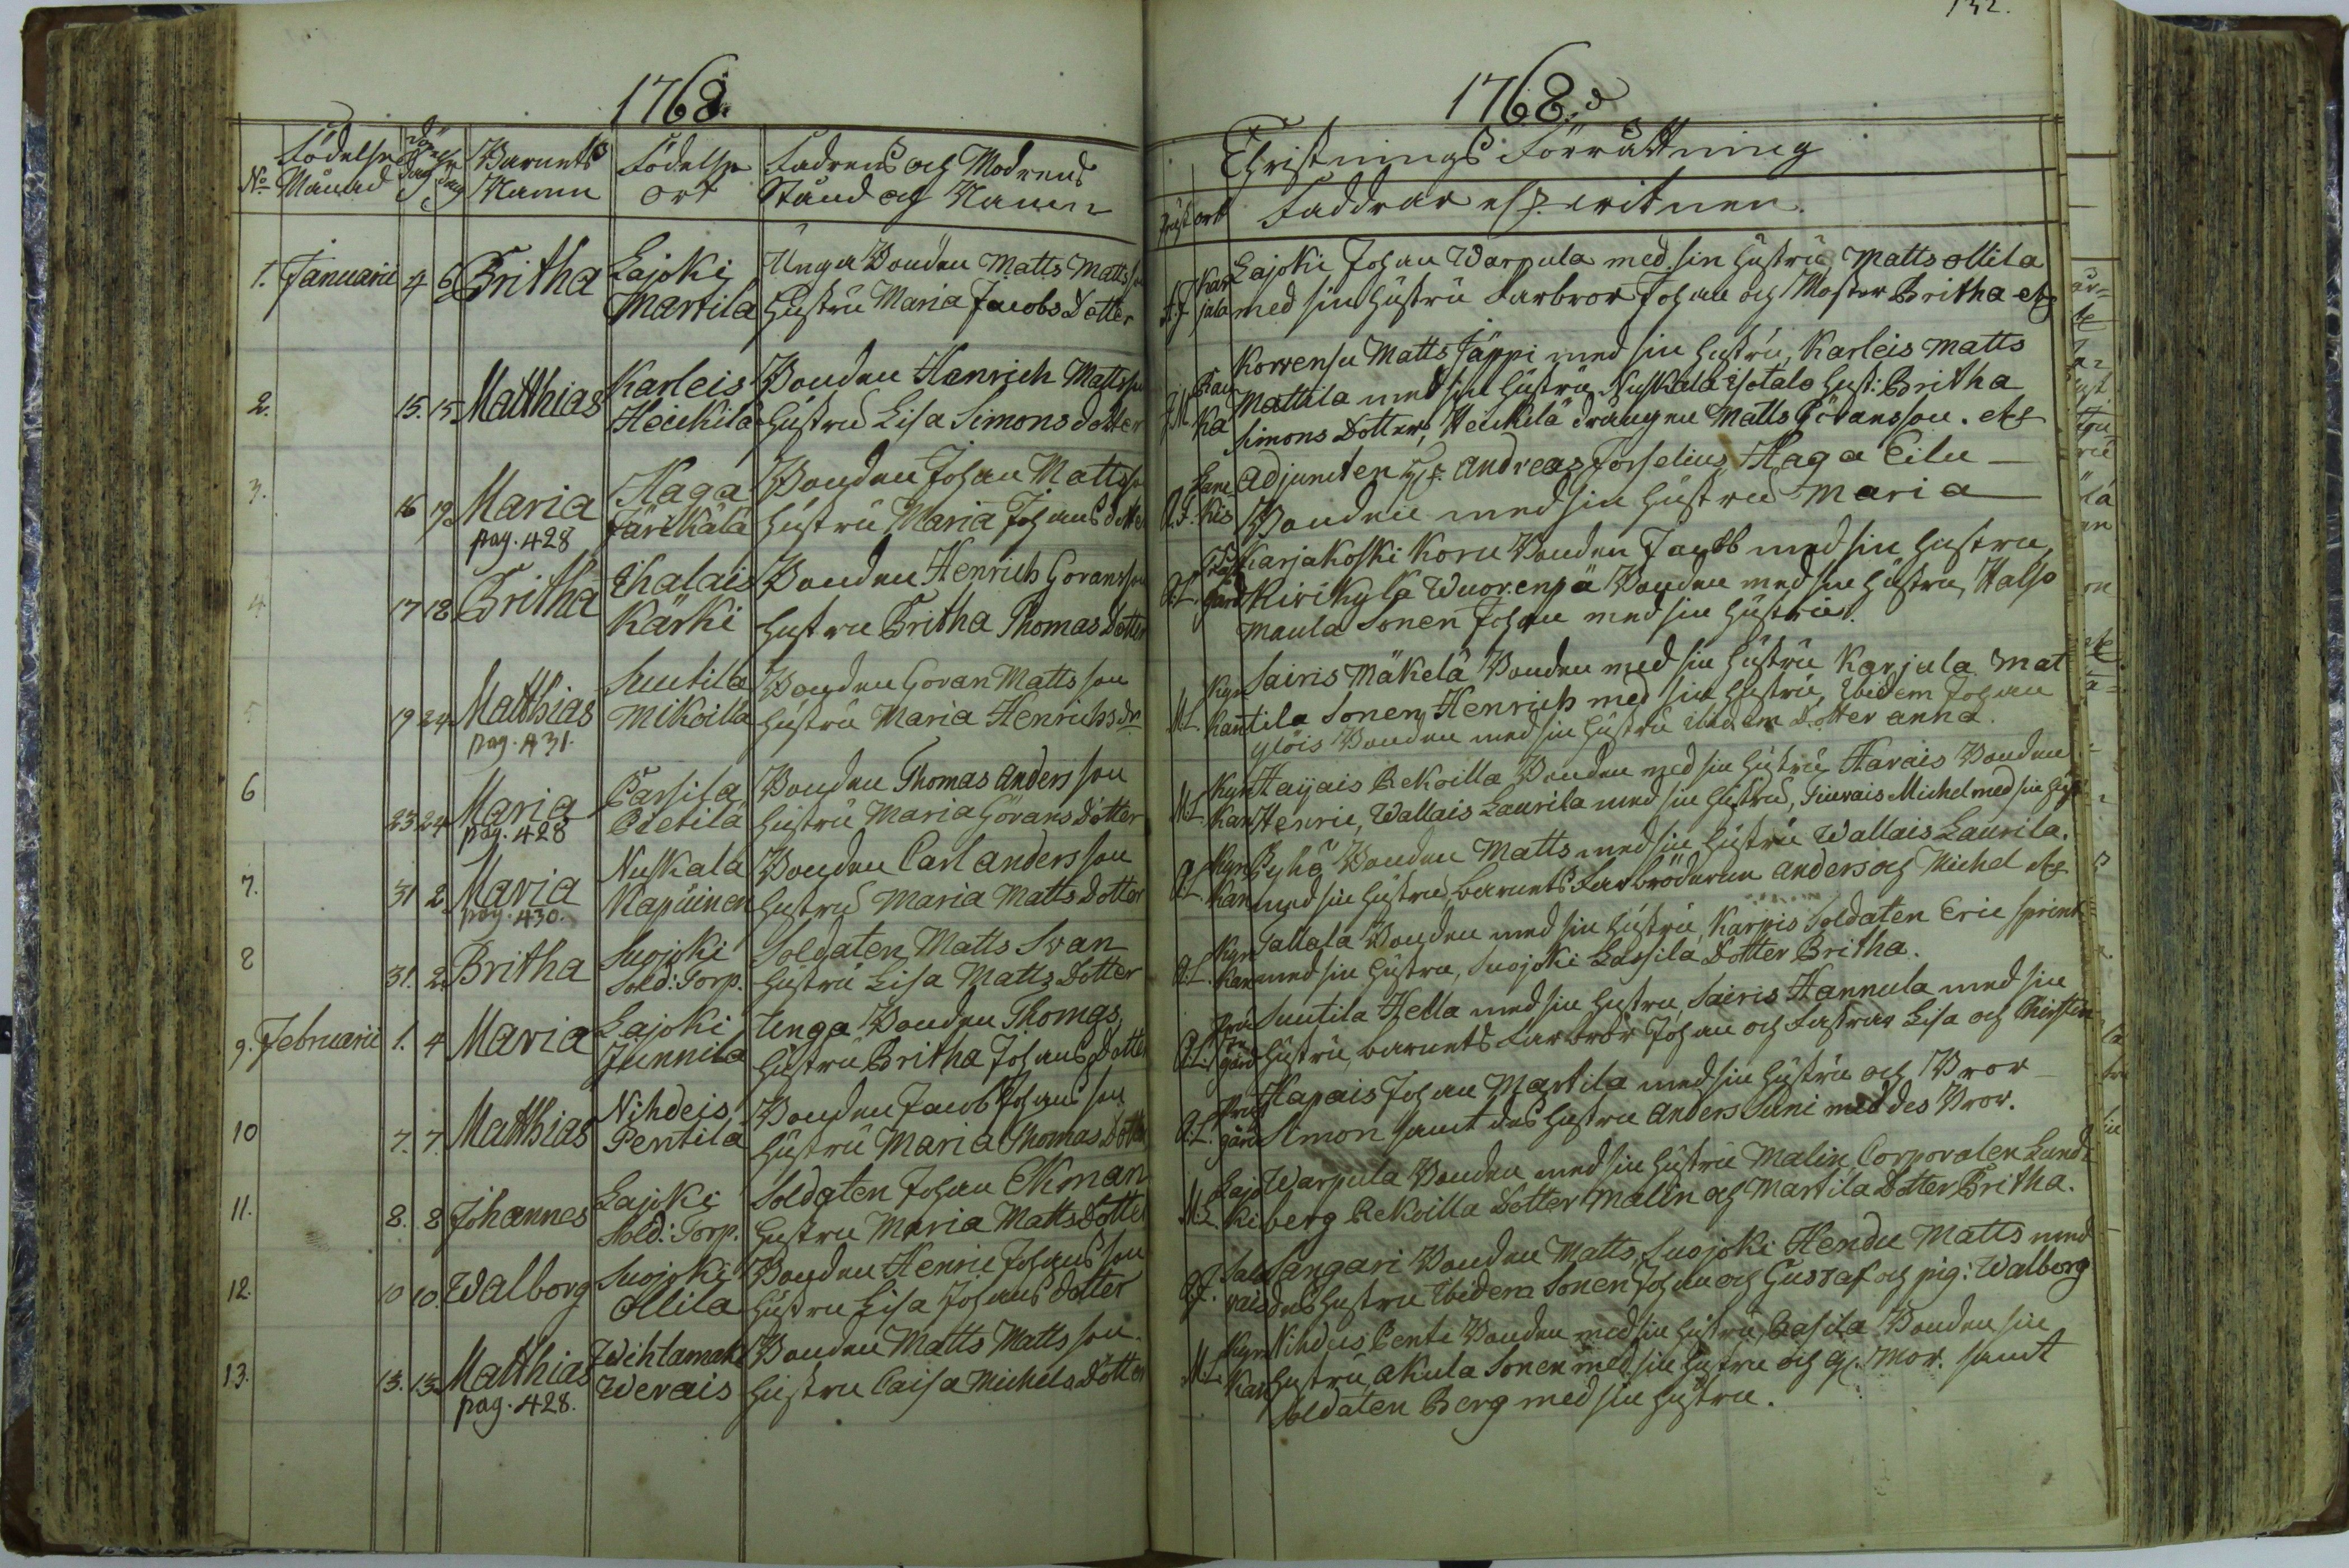 132.
1768.
N:o Födelse Månad
Barnets Namn
Födelse ort
Fadrens och Modrens Stånd och Namn
1. Januarii 4 6 Britha Lajoki Unga Bonden Matts Mattsson
Martila Hustru Maria Jacobs Dotter
2. 15. 15. Matthias Karleis Bonden Hanrich Mattsson
Heickilä Hustru Lisa Simons dotter
3. 16 19 Maria Haga Bonden Johan Mattsson
pag. 428 Järikälä Hustru Maria Johans dotter
4. 17 18 Britha Ihalais Bonden Henrich Göransson
Kärki Hustru Britha Thomas Dotter
19 24 Matthias Suutila Bonden Göran Matts son
pag. 431. Mikoilla Hustru Maria Henrichs dr
6 23 24 Maria Parsila Bonden Thomas Anders son
pag. 428 Pietilä Hustru Maria Görans Dotter
7. 31 2 Maria Nuskala Bonden Carl Anders son
pag. 430. Kapuinen Hustru Maria Matts Dotter
8 31. 2 Britha Suojoki Soldaten Matts Svan
Sold: Torp. Hustru Lisa Matts Dotter
9. Februarii 1. 4 Maria Lajoki Unga Bonden Thomas
Junnila Hustru Britha Johans Dotter
10 7. 7. Matthias Nihdeis Bonden Jacob Johans son
Pentila Hustru Maria Thomas Dotter
11. 8. 8 Johannes Lajoki Soldaten Johan Ekman
Sold: Torp. Hustru Maria Matts Dotter
12. 10 10. Walborg Suojoki Bonden Henric Johans son
Ollila Hustru Lisa Johans Dotter
13. 13. 13. Matthias Wihlamak Bonden Matts Matts son
pag. 428. Werais Hustru Caisa Michels Dotter
1768.
Christnings Förrättning
Präst ort Faddrar eller witnen.
A.F. Kar Lajoki Johan Warpula med sin Hustru, Matts Ollila
jula med sin Hustru Farbror Johan och Moster Britha etc
Korvensu Matts Jäppi med sin Hustru, Karleis Matts
Mattila med sin Hustru Nuskala Isotalo Hust: Britha
Simons Dotter, Heickilä drängen Matts Göransson. etc
Adjuncten Hr. Andreas Forselius, Haga Eilu
kis Bonden med sin Hustru Maria
Karjakoski Koru Bonden Jacob med sin Hustru,
gård Kirikylä Wuorenpä Bonden med sin Hustru, Halso
Maula Sonen Johan med sin Hustru.
Kyr Sairis Mäkelä Bonden med sin Hustru Karjula Mat
M.L. kan tila Sonen Henrich med sin Hustru, Ibidem Johan
Ylöis Bonden med sin Hustru Ibidem Dotter Anna.
Kyr Haijais Rekoilla Bonden med sin Hustru Harais Bonden
M.L. kan Henric, Wallais Laurila med sin Hustru, Michel med sin
Kyr Pyhö Bonden Matts med sin Hustru Wallais Laurila.
kan med sin Hustru, Barnets Farbröderne Anders och Michel etc
Kyr Tallala Bonden med sin Hustru, Karpis Soldaten Eric Sprint
kan med sin Hustru, Suojoki Lassila Dotter Britha.
Suutila Hella med sin Hustru, Sairis Hannula med sin
gård Hustru, barnets Farbror Johan och Fastrar Lisa och Chirstin
Hapais Johan Martila med sin Hustru och Bror
gård Simon samt des Hustru Anders Suni med des Bror.
Lajo Warpula Bonden med sin Hustru Malin, Corporalen Lund
M.L. ki berg Rekoilla Dotter Malin och Martila Dotter Britha.
Sangari Bonden Matts, Suojoki Hendu Matts med
rais des Hustru Ibidem Sonen Johan och Gustaf och pig: Walborg
Kyr Nihdeis Penti Bonden med sin Hustru, Pasila Bonden sin
M.L. kan Hustru, Akula Sonen med sin Hustru och Mor. samt
Soldaten Berg med sin Hustru.